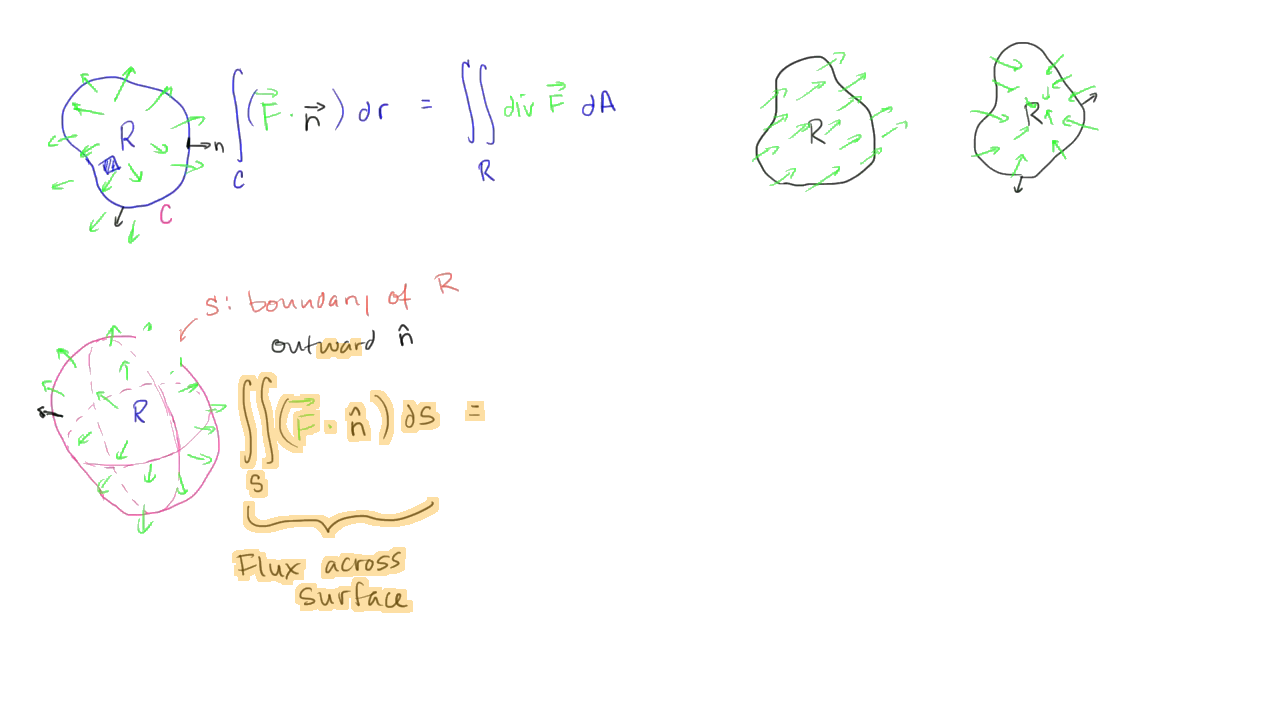 R
n
C
∫_C (F⃗ · n⃗) dr = ∬_R div F⃗ dA
R
R
S: boundary of R
outward n̂
R
∬_S (F⃗ · n̂) dS =
Flux across
surface